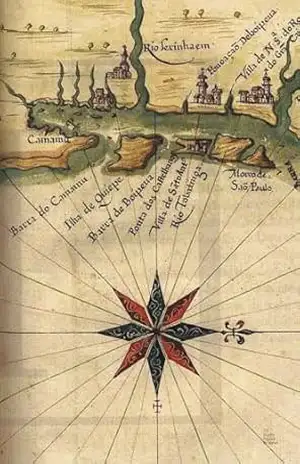 Rio Serinhaem
Povoação Deboipena
Villa de N. S. do
Camamu
Barra do Camamu
Ilha de Quiepe
Barra de Boipena
Ponta dos Castelhanos
Villa de
Rio
Morro de
São Paulo.